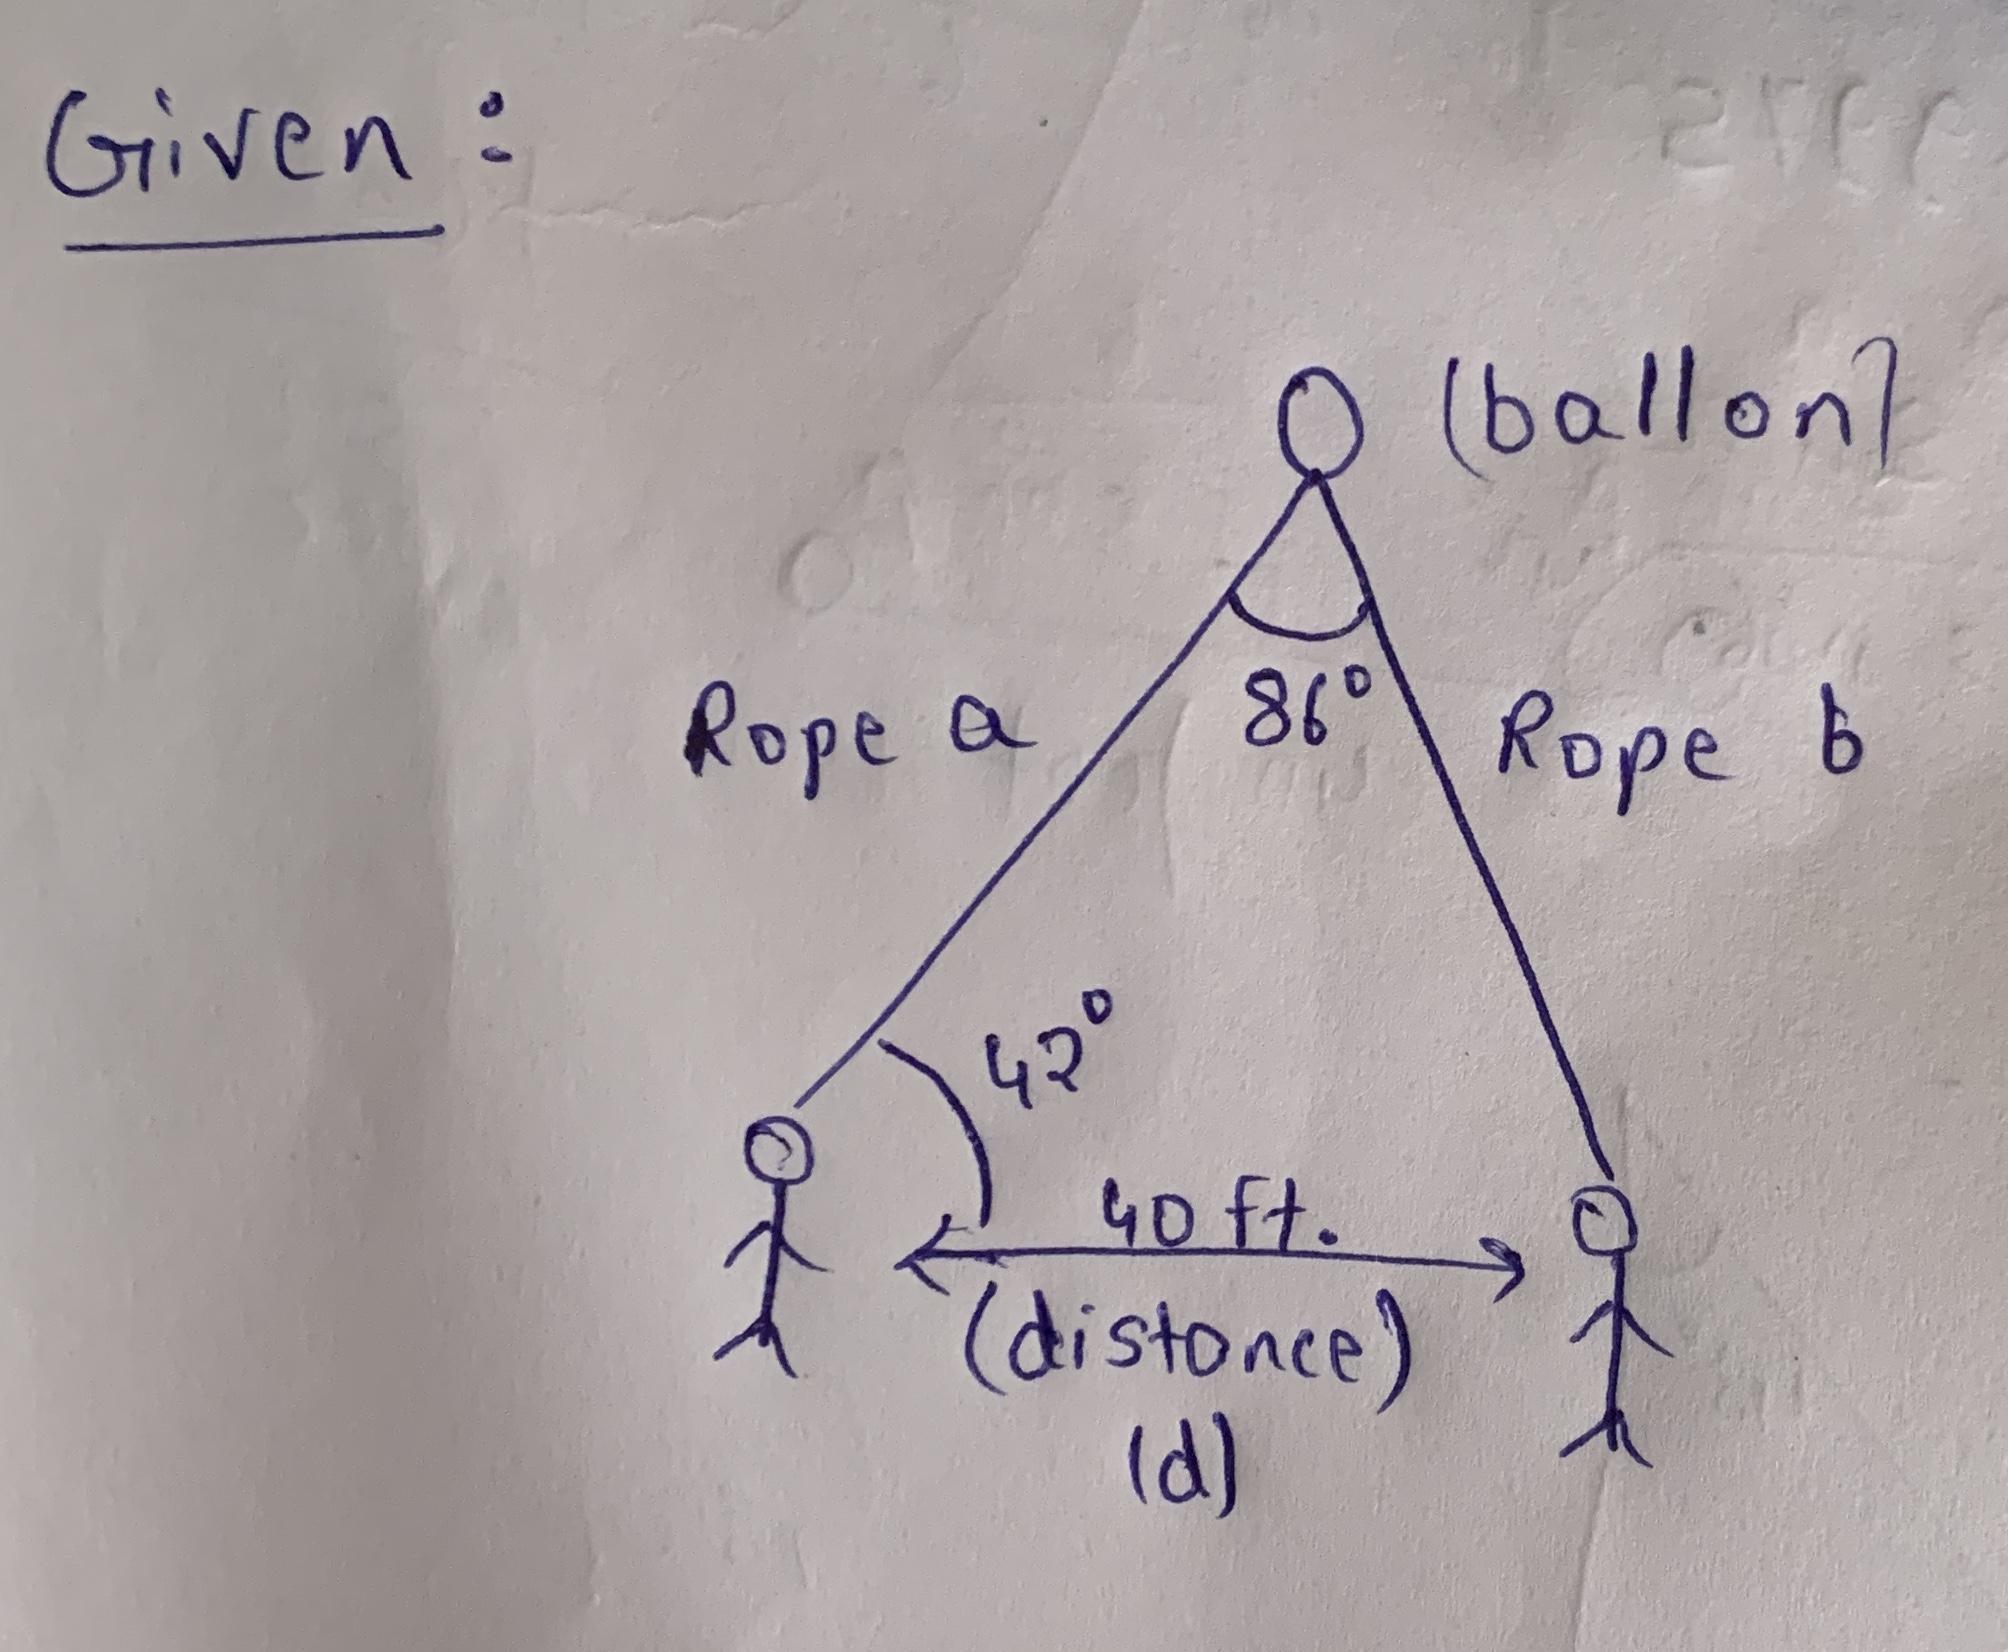 Given :
(ballon)
86°
Rope a
Rope b
42°
40 ft.
(distance)
(d)